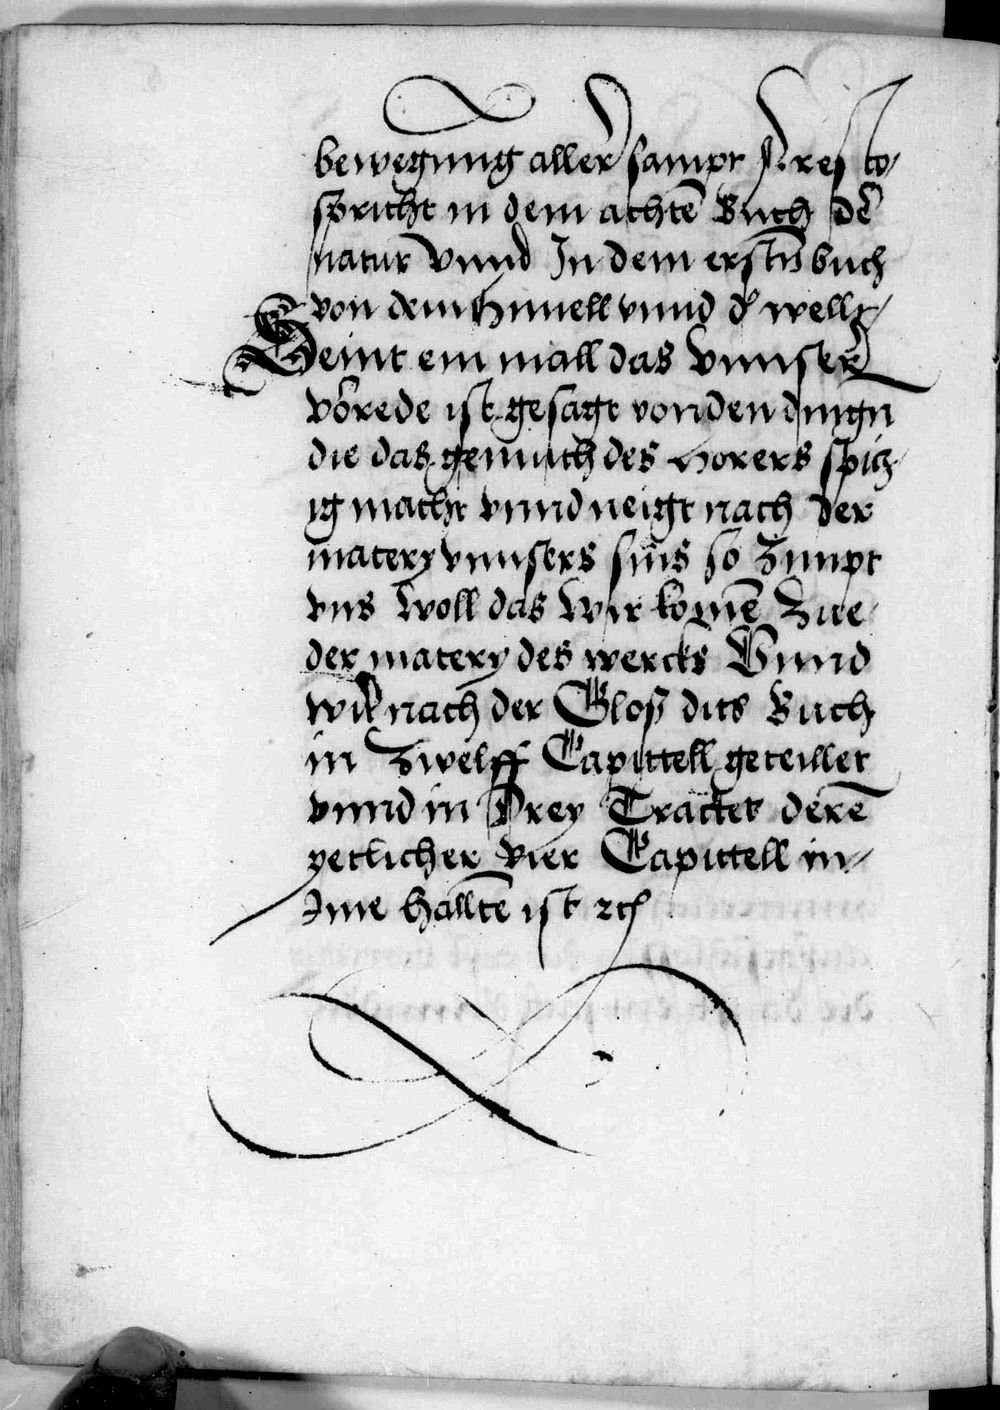 bewegung aller sampt Aresto-
spricht in dem achtē Buch dē
natur Vnnd In dem erstn̄ buch
von dem Himell vnnd d' wellt-
Seint ein mall das Vnnser
vorrede ist gesagt von den dingn
die das gemuth des Horers spitz-
ig macht vnnd neigt nach der
matery vnnsers sins so Zimpt
vns Woll das Wir komē Zue
der matery des wercks Vnnd
wir nach der Gloß dits Buch
in Zwelff Capittell geteillet
vnnd in Drey Tracktet derē
yetlicher Vier Capittell in-
Ime halltē ist